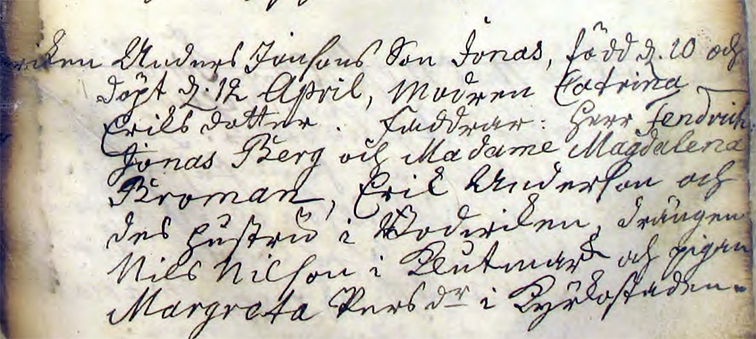 riken Anders Jönsons Son Jonas, född d. 10 och
döpt d. 12 April, Modren Catrina
Eriks dotter. Faddrar: Herr Fendrich
Jonas Berg och Madame Magdalena
Broman, Erik Anderson och
des hustru i Bodviken, drängen
Nils Nilson i Klutmark och pigan
Margreta Pers dr i Kyrkostaden.